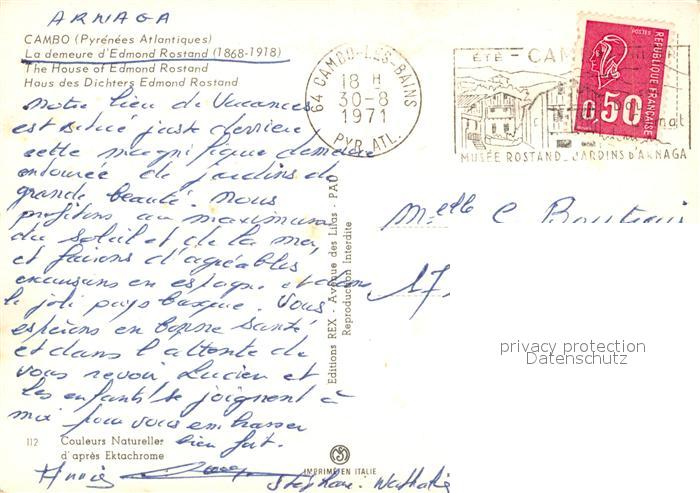 ARNAGA
CAMBO (Pyrénées Atlantiques)
La demeure d'Edmond Rostand (1868-1918)
The House of Edmond Rostand
Haus des Dichters Edmond Rostand
Notre lieu de Vacances
est situé juste derrière
cette magnifique demeure
entourée de jardins de
grande beauté. Nous
profitons au maximum
du soleil et de la mer
et faisons d'agréables
excursions en espagne et dans
le joli pays basque. Vous
espérons en bonne santé
et dans l'attente de
vous revoir Lucien et
les enfants se joignent à
moi pour vous embrasser
bien fort.
Annie
Stéphane. Nathalie
112 Couleurs Natureller
d'après Ektachrome
IMPRIMÉ EN ITALIE
Editions REX - Avenue des Lilas - PAU
Reproduction Interdite
64 CAMBO-LES-BAINS
18 H
30-8
1971
PYR. ATL.
ÉTÉ - CAM
MUSÉE ROSTAND_JARDINS D'ARNAGA
POSTES
REPUBLIQUE FRANÇAISE
0,50
Melle C
17
privacy protection
Datenschutz